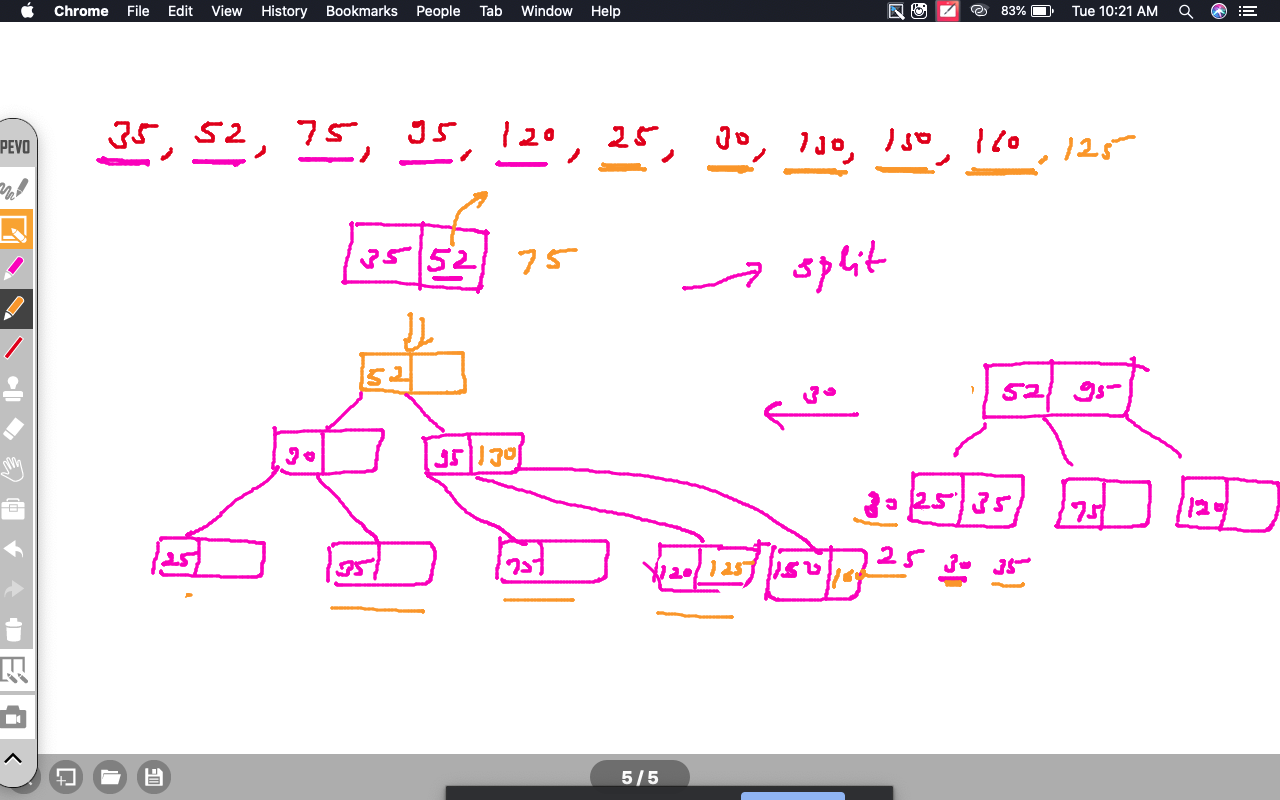 Chrome File Edit View History Bookmarks People Tab Window Help 83% Tue 10:21 AM
PEVO
35, 52, 75, 95, 120, 25, 30, 130, 150, 160, 125
35 52 75
split
52
30
52 95
30
95 130
30 25 35 75 120
25 35 75 120 125 150 160
25 30 35
5 / 5